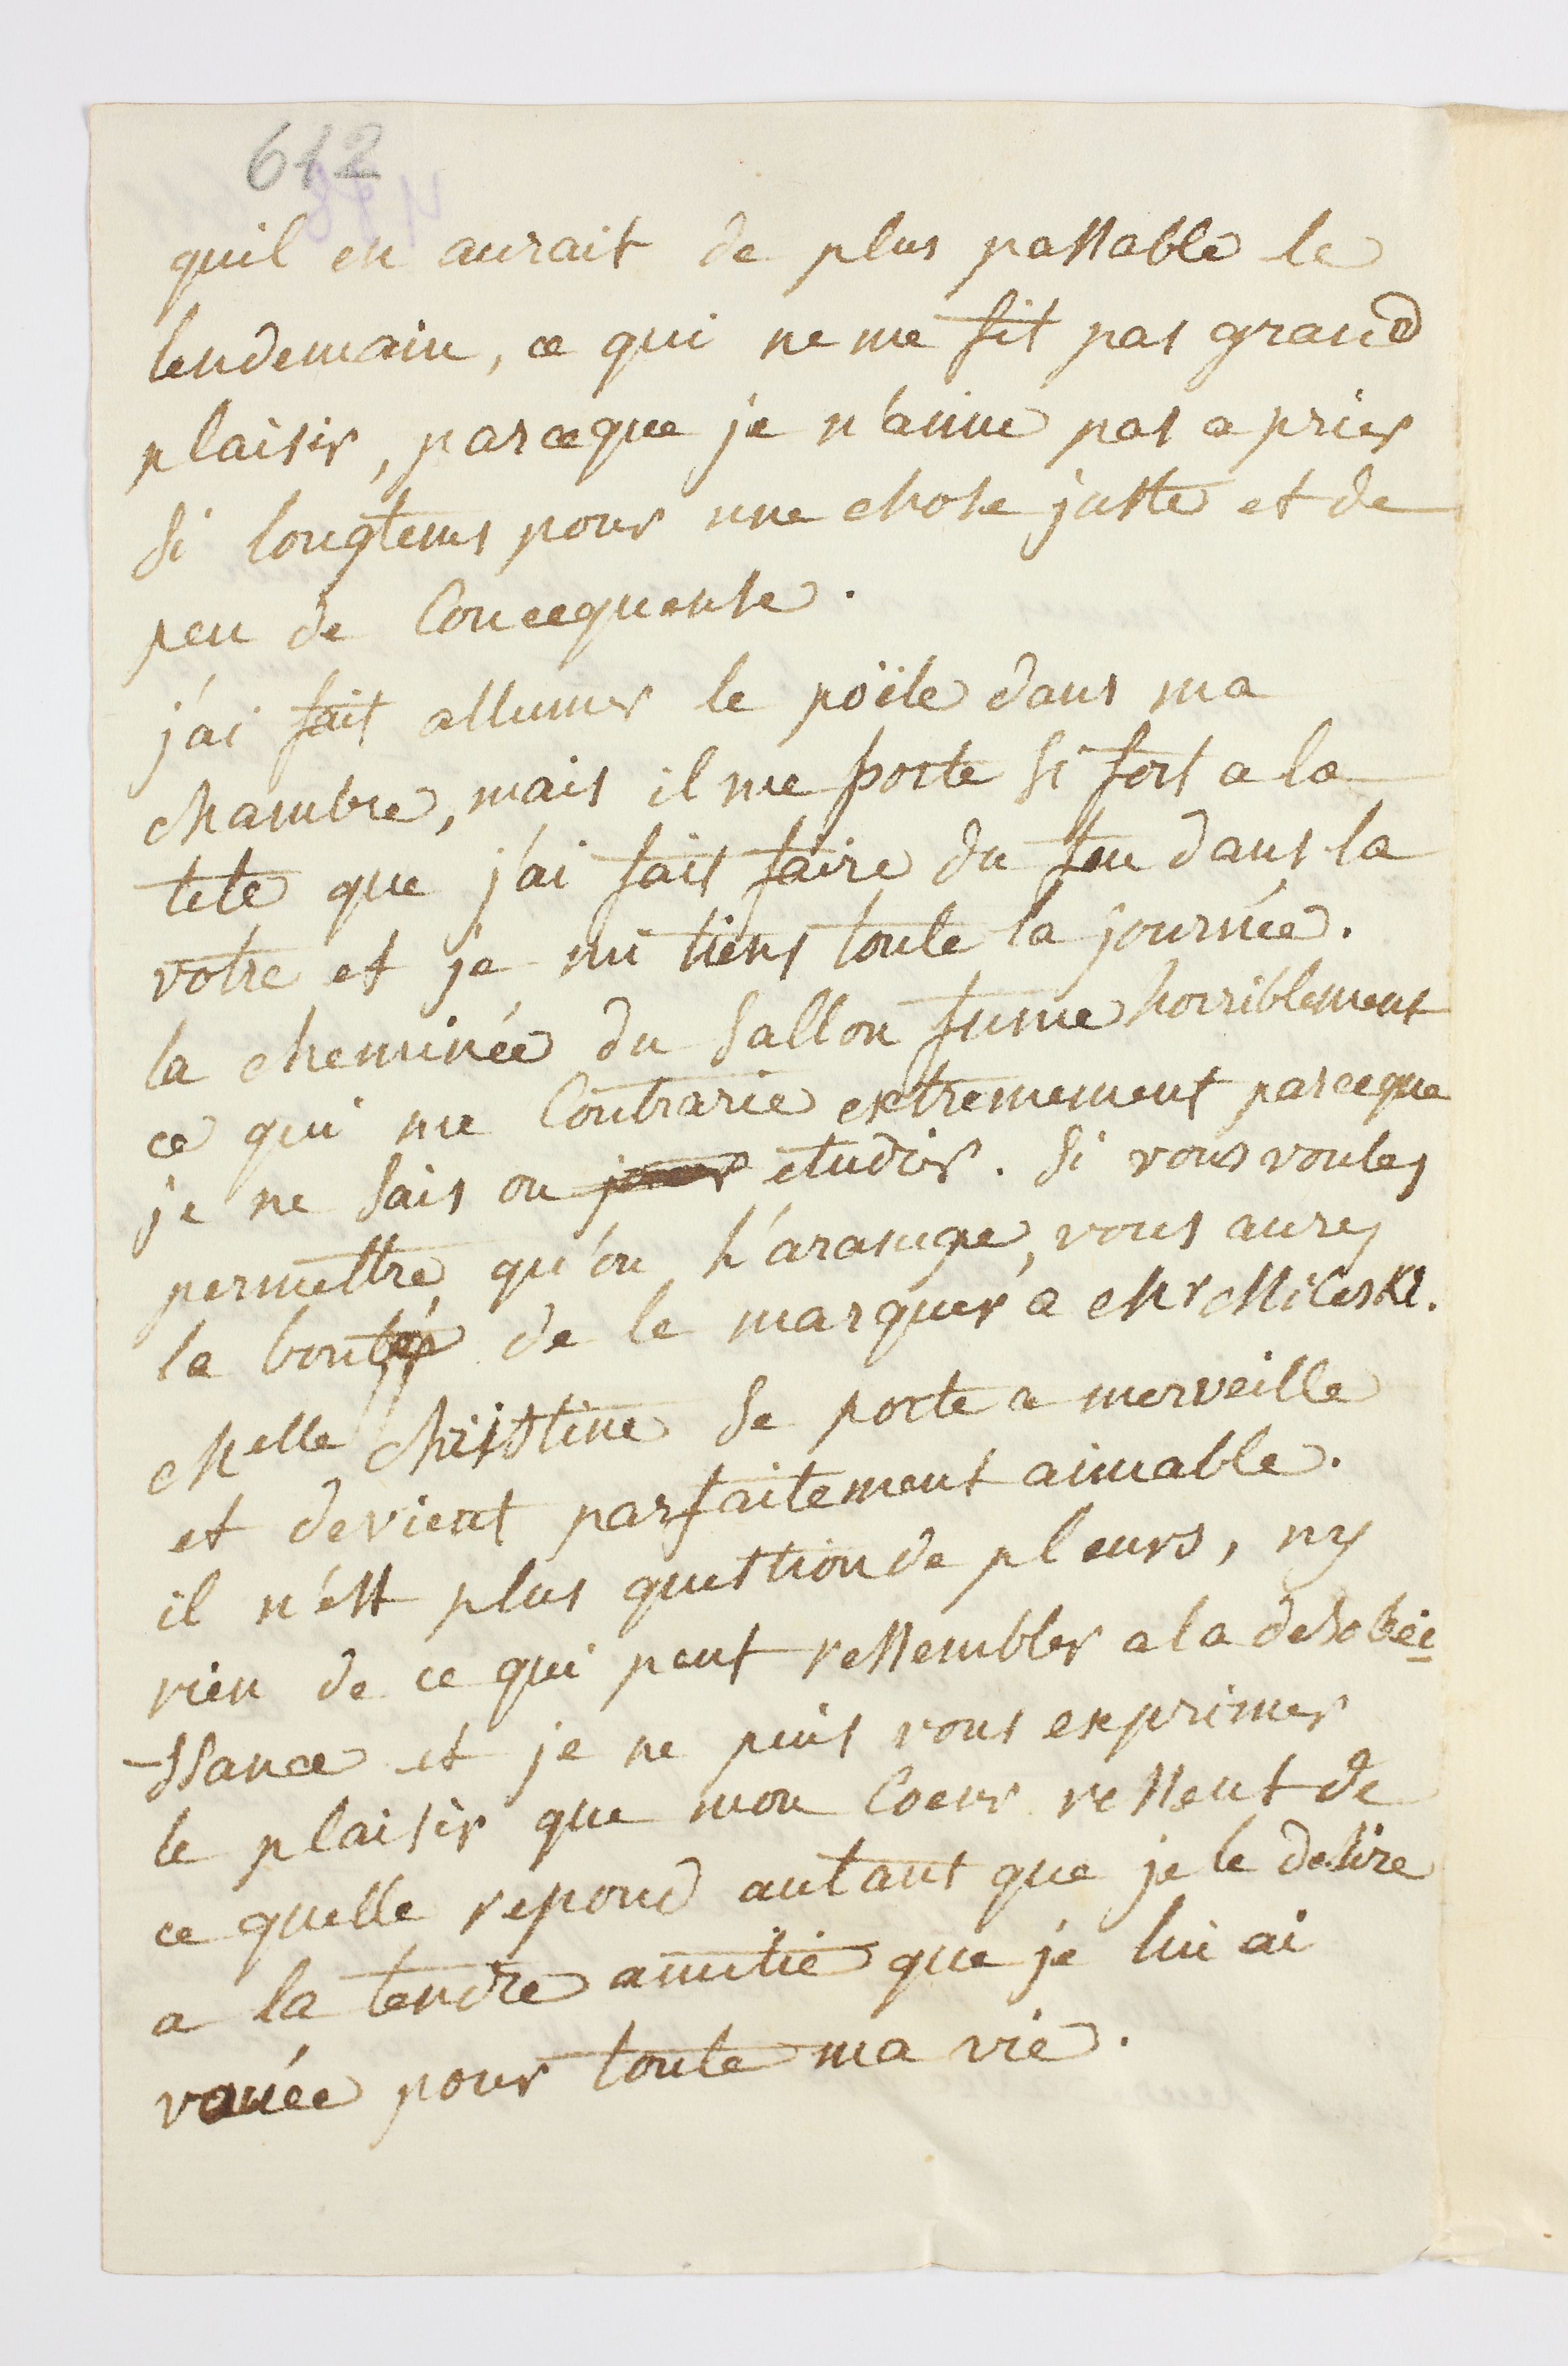 612
quil en aurait de plus passable le
lendemain, ce qui ne me fit pas grand
plaisir, parceque je n'aime pas a prier
si longtems pour une chose juste et de
peu de Concequense.
j'ai fait allumer le poïle dans ma
chambre, mais il me porte si fort a la
tete que j'ai fait faire du feu dans la
votre et je mi tiens toute la journée.
la cheminée du sallon fume horriblement
ce qui me Contrarie extremement parceque
je ne sais ou etudier. si vous voulez
permettre qu'on l'arange, vous aurez
la bonté de le marquer a Mr Mileski.
Melle Christine se porte a merveille
et devient parfaitement aimable.
il n'est plus question de pleurs, ny
rien de ce qui peut ressembler a la desobéi
-ssance et je ne puis vous exprimer
le plaisir que mon Coeur ressent de
ce quelle repond autant que je le desire
a la tendre amitié que je lui ai
vouée pour toute ma vie.